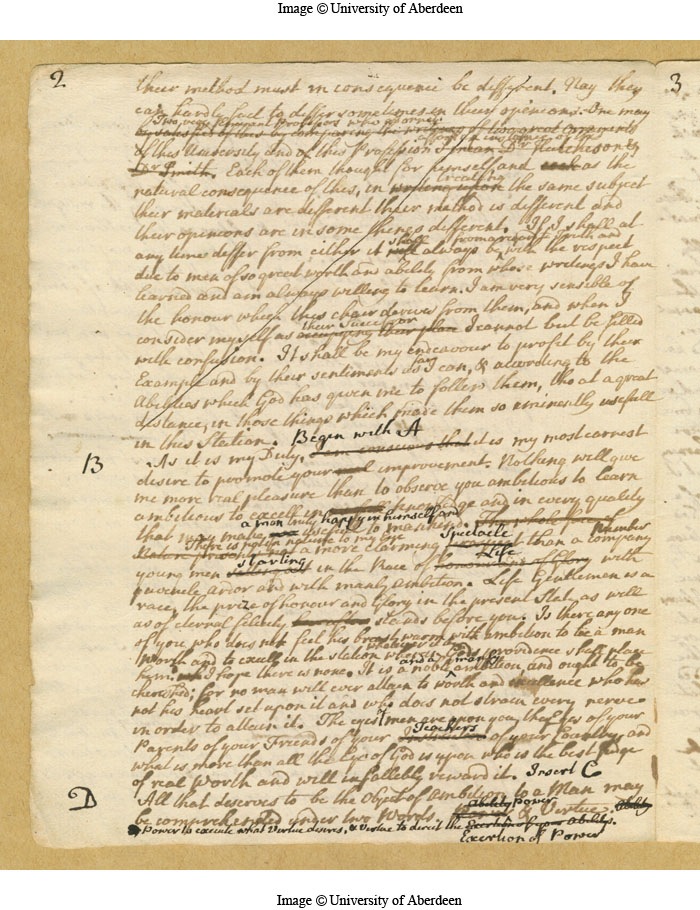 Image © University of Aberdeen
2
3
their method must in consequence be different. Nay they
can hardly fail to differ sometimes in their opinions. One may
Two very eminent Professors who adorned
be satisfied of this by comparing the writings of two great Ornaments
of this University and of this Profession I mean Dr Hutcheson &
Dr Smith. Each of them thought for himself and as the
treating
natural consequence of this, in writing upon the same subject
their materials are different their method is different and
their opinions are in some things different. If I shall at
shall from a regard to truth, and
any times differ from either it will always be with the respect
due to men of so great worth and ability from whose writings I have
learned and am always willing to learn. I am very sensible of
the honour which this chair derives from them, and when I
their Successor
consider myself as occupying their place I cannot but be filled
with confusion. It shall be my endeavour to profit by their
far
Example and by their sentiments as I can, & according to the
Abilities which God has given me to follow them, tho at a great
distance, in those things which made them so eminently usefull
in this Station. Begin with A
B
As it is my Duty. I am conscious that it is my most earnest
desire to promote your improvement. Nothing will give
me more real pleasure than to observe you ambitious to learn
ambitious to excell in knowledge and in every quality
a man truly happy in himself and
that may make usefull to mankind. The whole
There is not in nature to my Eye Spectacle Number
a more charming than a company
starting Life
young men in the Race of with
juvenile ardor and with manly ambition. Life Gentlemen is a
race, the prize of honour and Glory in the present State, as well
as of eternal felicity stands before you. Is there any one
of you who does not feel his breast warm with ambition to be a man
worth and to excell in the station wherein Gods providence shall place
and a manly
him. I hope there is none. It is a noble ambition, and ought to be
cherished; for no man will ever attain to worth and excellence who has
not his heart set upon it and who does not strain every nerve
in order to attain it. The eyes of men are upon you, the Eyes of your
Teachers
Parents of your Friends of your Instructors of your Country, and
what is more than all the Eye of God is upon you who is the best Judge
of real Worth and will infallibly reward it. Insert C
D
All that deserves to be the Object of Ambition to a Man may
Ability Power
be comprehended under two Words, & Virtue. Ability
Power to execute what Virtue desires, & Virtue to direct the Exertion of your Ability.
Exertion of Power
Image © University of Aberdeen